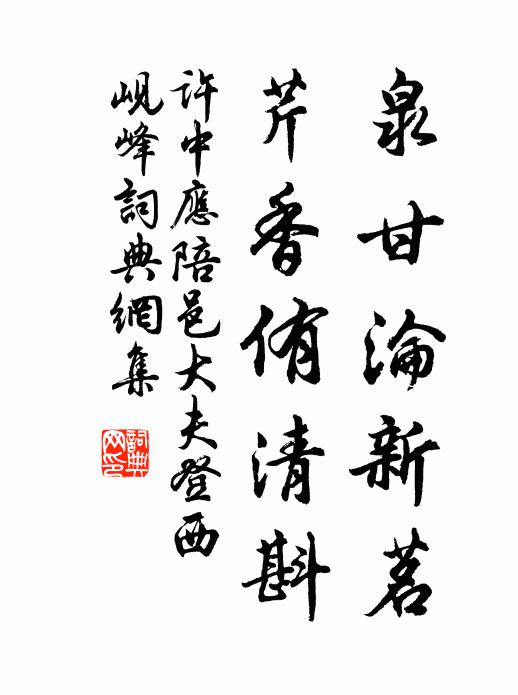 泉甘淪新茗
芹香侑清斟
許中應陪邑大夫登西
峴峰詞典網集
詞典
网印